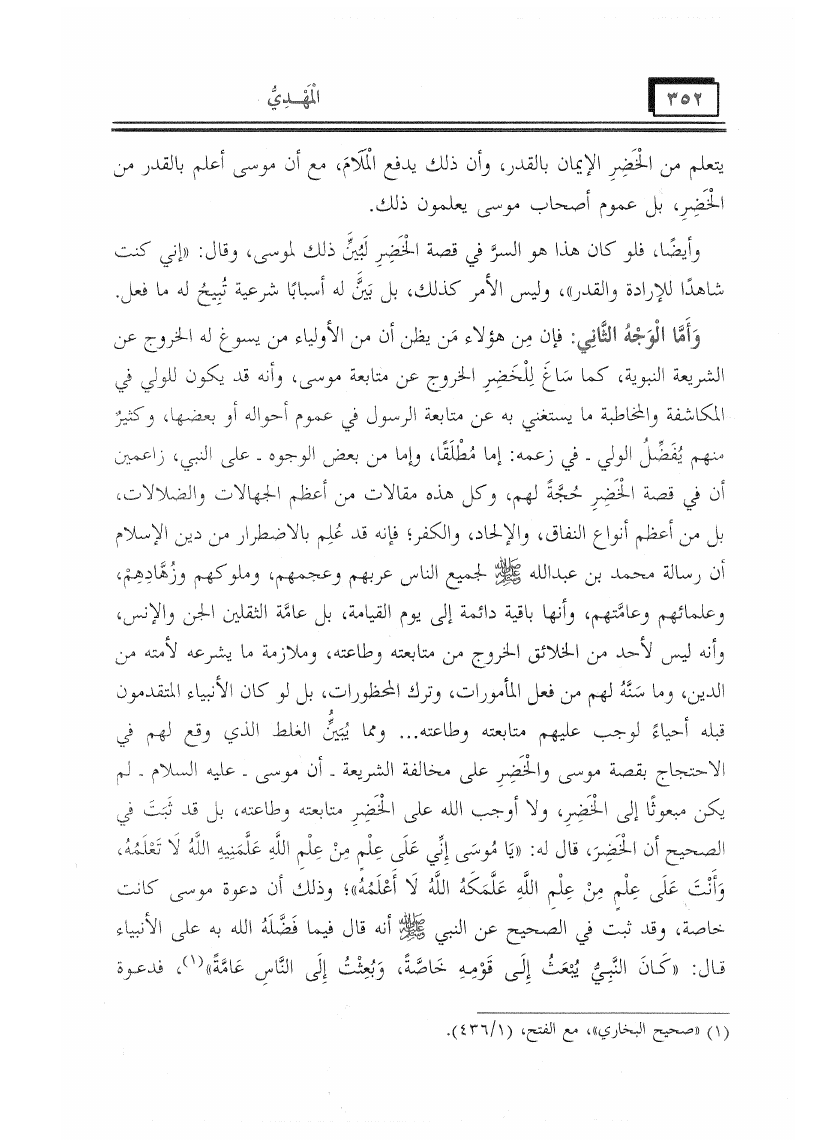 ٣٥٢
الْمَهْـدِيُّ
يتعلم من الْخَضِرِ الإيمان بالقدر، وأن ذلك يدفع الْمَلَامَ، مع أن موسى أعلم بالقدر من
الْخَضِرِ، بل عموم أصحاب موسى يعلمون ذلك.
وأيضًا، فلو كان هذا هو السرَّ في قصة الْخَضِرِ لَبُيِّنَ ذلك لموسى، وقال: «إني كنت
شاهدًا للإرادة والقدر»، وليس الأمر كذلك، بل بَيَّنَ له أسبابًا شرعية تُبِيحُ له ما فعل.
وَأَمَّا الْوَجْهُ الثَّانِي: فإن مِن هؤلاء مَن يظن أن من الأولياء من يسوغ له الخروج عن
الشريعة النبوية، كما سَاغَ لِلْخَضِرِ الخروج عن متابعة موسى، وأنه قد يكون للولي في
المكاشفة والمخاطبة ما يستغني به عن متابعة الرسول في عموم أحواله أو بعضها، وكثيرٌ
منهم يُفَضِّلُ الولي ـ في زعمه: إما مُطْلَقًا، وإما من بعض الوجوه ـ على النبي، زاعمين
أن في قصة الْخَضِرِ حُجَّةً لهم، وكل هذه مقالات من أعظم الجهالات والضلالات،
بل من أعظم أنواع النفاق، والإلحاد، والكفر؛ فإنه قد عُلِم بالاضطرار من دين الإسلام
أن رسالة محمد بن عبدالله ﷺ لجميع الناس عربهم وعجمهم، وملوكهم وزُهَّادِهِمْ،
وعلمائهم وعامَّتهم، وأنها باقية دائمة إلى يوم القيامة، بل عامَّة الثقلين الجن والإنس،
وأنه ليس لأحد من الخلائق الخروج من متابعته وطاعته، وملازمة ما يشرعه لأمته من
الدين، وما سَنَّهُ لهم من فعل المأمورات، وترك المحظورات، بل لو كان الأنبياء المتقدمون
قبله أحياءً لوجب عليهم متابعته وطاعته... ومما يُبَيِّنُ الغلط الذي وقع لهم في
الاحتجاج بقصة موسى والْخَضِرِ على مخالفة الشريعة ـ أن موسى ـ عليه السلام ـ لم
يكن مبعوثًا إلى الْخَضِرِ، ولا أوجب الله على الْخَضِرِ متابعته وطاعته، بل قد ثَبَتَ في
الصحيح أن الْخَضِرَ، قال له: «يَا مُوسَى إِنِّي عَلَى عِلْمٍ مِنْ عِلْمِ اللَّهِ عَلَّمَنِيهِ اللَّهُ لَا تَعْلَمُهُ،
وَأَنْتَ عَلَى عِلْمٍ مِنْ عِلْمِ اللَّهِ عَلَّمَكَهُ اللَّهُ لَا أَعْلَمُهُ»؛ وذلك أن دعوة موسى كانت
خاصة، وقد ثبت في الصحيح عن النبي ﷺ أنه قال فيما فَضَّلَهُ الله به على الأنبياء
قال: «كَانَ النَّبِيُّ يُبْعَثُ إِلَى قَوْمِهِ خَاصَّةً، وَبُعِثْتُ إِلَى النَّاسِ عَامَّةً»(١)، فدعوة
(١) «صحيح البخاري»، مع الفتح، (٤٣٦/١).